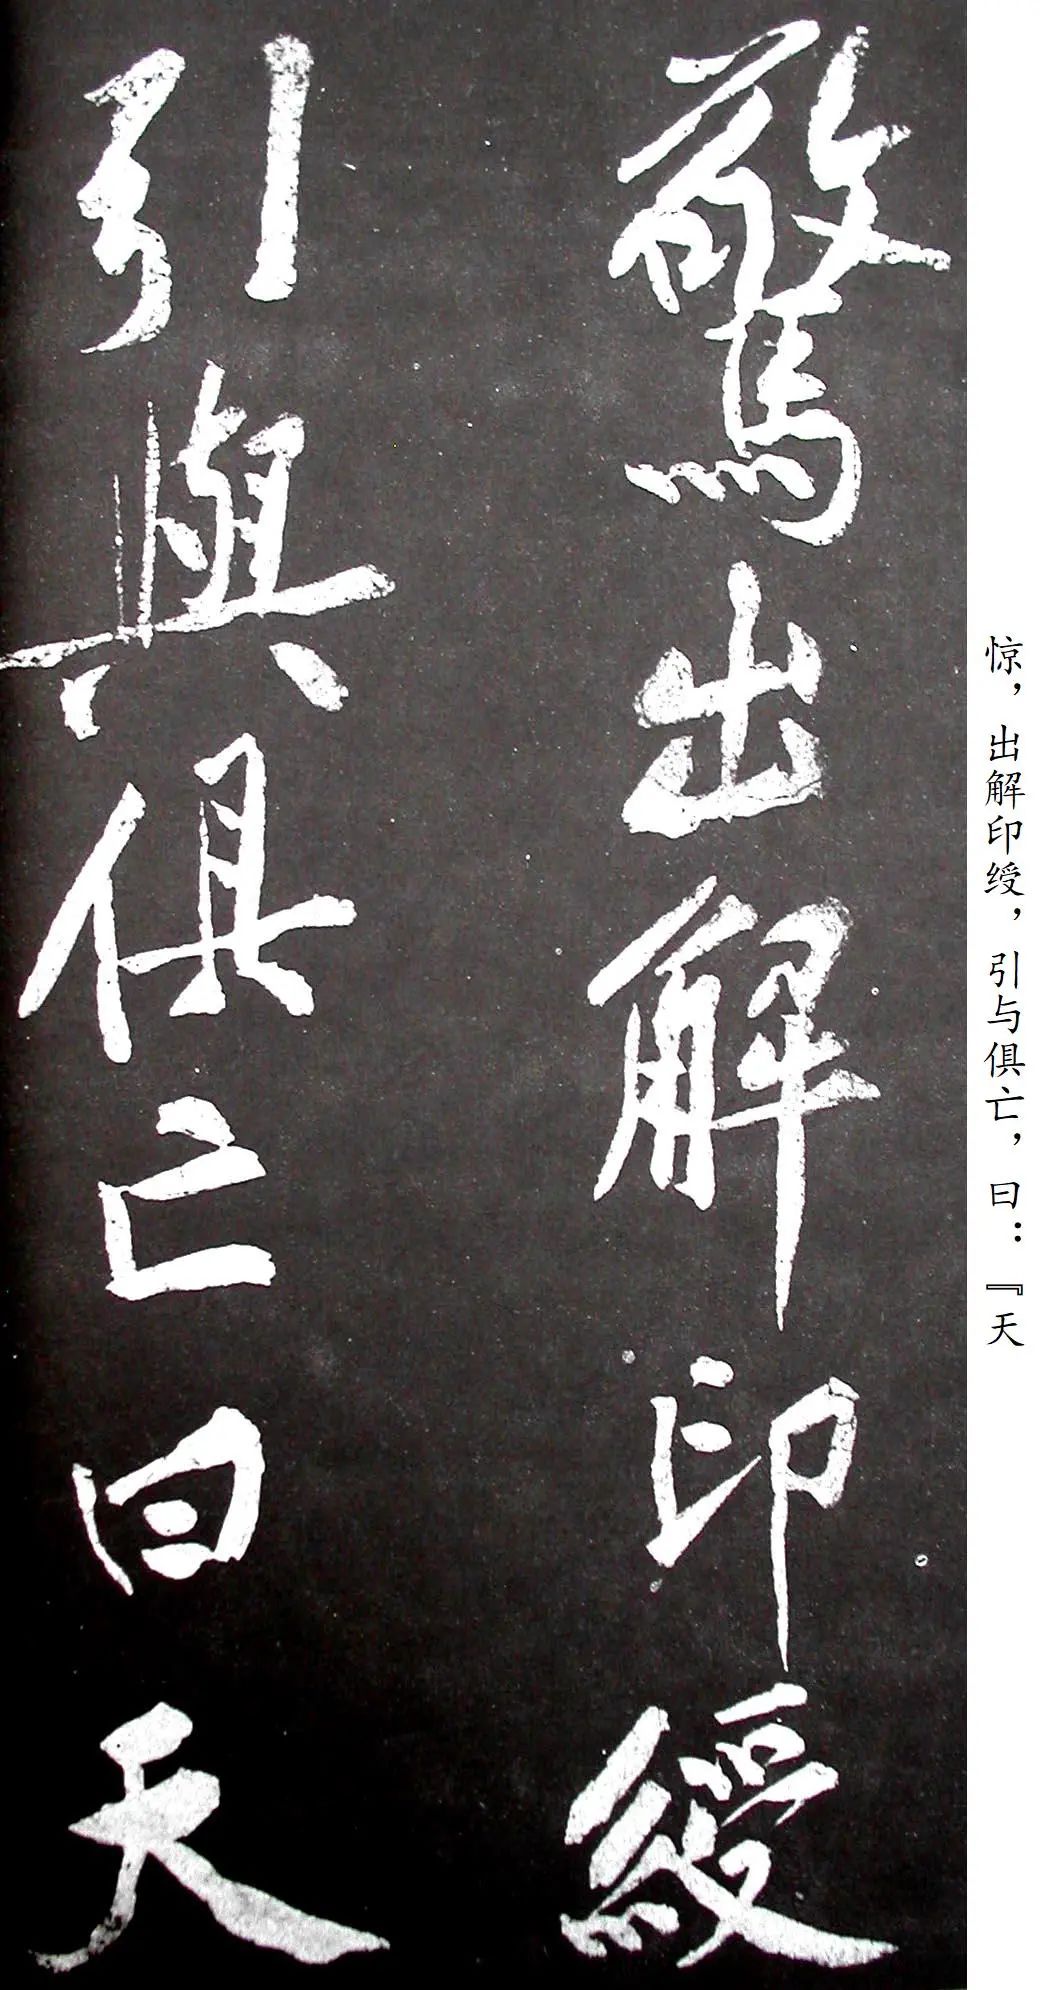 驚出解印綬
引與俱亡曰天
惊，出解印绶，引与俱亡，曰：『天